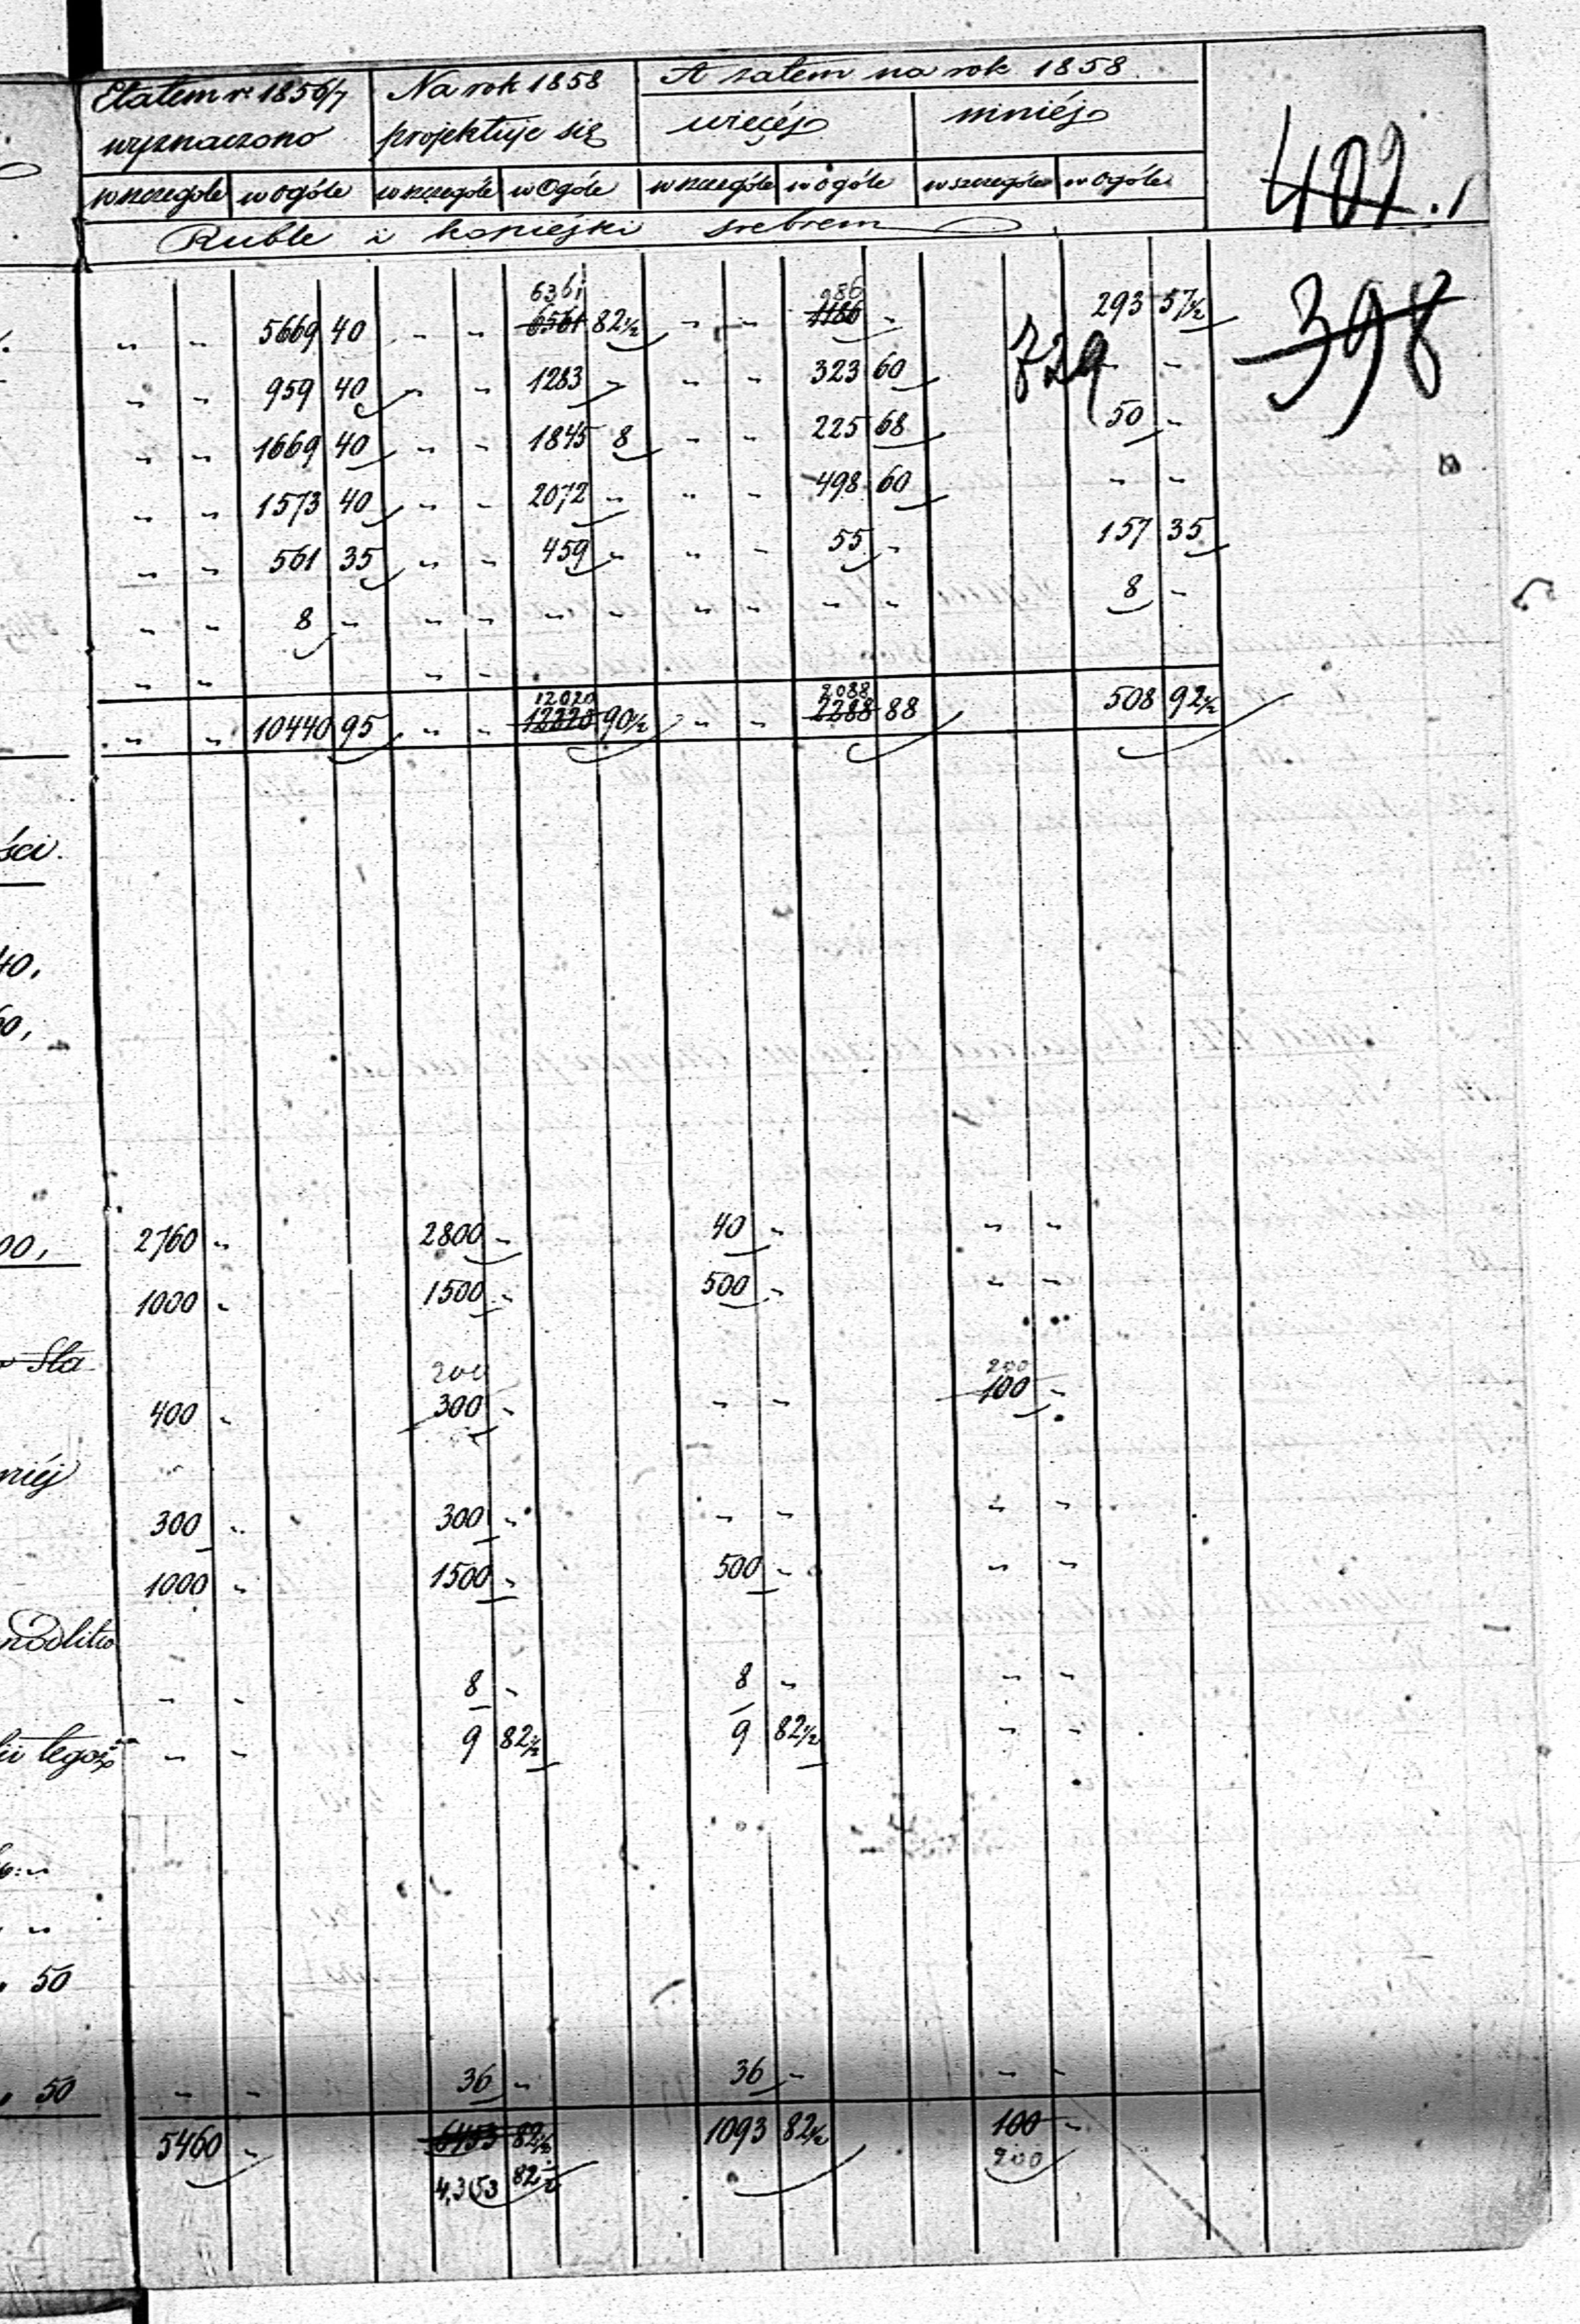 Etatem r. 1856/7 Na rok 1858 A zatem na rok 1858
wyznaczono projektuje się więcéj mniéj
wszczególe wogóle wszczególe wogóle wszczególe wogóle wszczególe wogóle
Ruble i kopiejki srebrem
402.
398
729
6361 986
„ „ 5669 40 „ „ 6561 82½ „ „ 1186 „ 293 57½
„ „ 959 40 „ „ 1283 „ „ „ 323 60 „ „
„ „ 1669 40 „ „ 1845 8 „ „ 225 68 50 „
„ „ 1573 40 „ „ 2072 „ „ „ 498 60 „ „
„ „ 561 35 „ „ 459 „ „ „ 55 „ 157 35
„ „ 8 „ „ „ „ „ „ „ „ „ 8 „
„ „ „ „
12020 2088
„ „ 10440 95 „ „ 12220 90½ „ „ 2288 88 508 92½
ści.
40,
60,
00, 2760 „ 2800 „ 40 „ „ „
1000 „ 1500 „ 500 „ „ „
Sta 200 200
400 „ 300 „ „ „ 100 „
niéj
300 „ 300 „ „ „ „ „
1000 „ 1500 „ 500 „ „ „
modlitw
„ „ 8 „ 8 „ „ „
tegoż „ „ 9 82½ 9 82½ „ „
„
„
50
„ 50 „ „ 36 „ 36 „ „ „
5460 „ 6453 82½ 1093 82½ 100 „
4,353 82½ 200